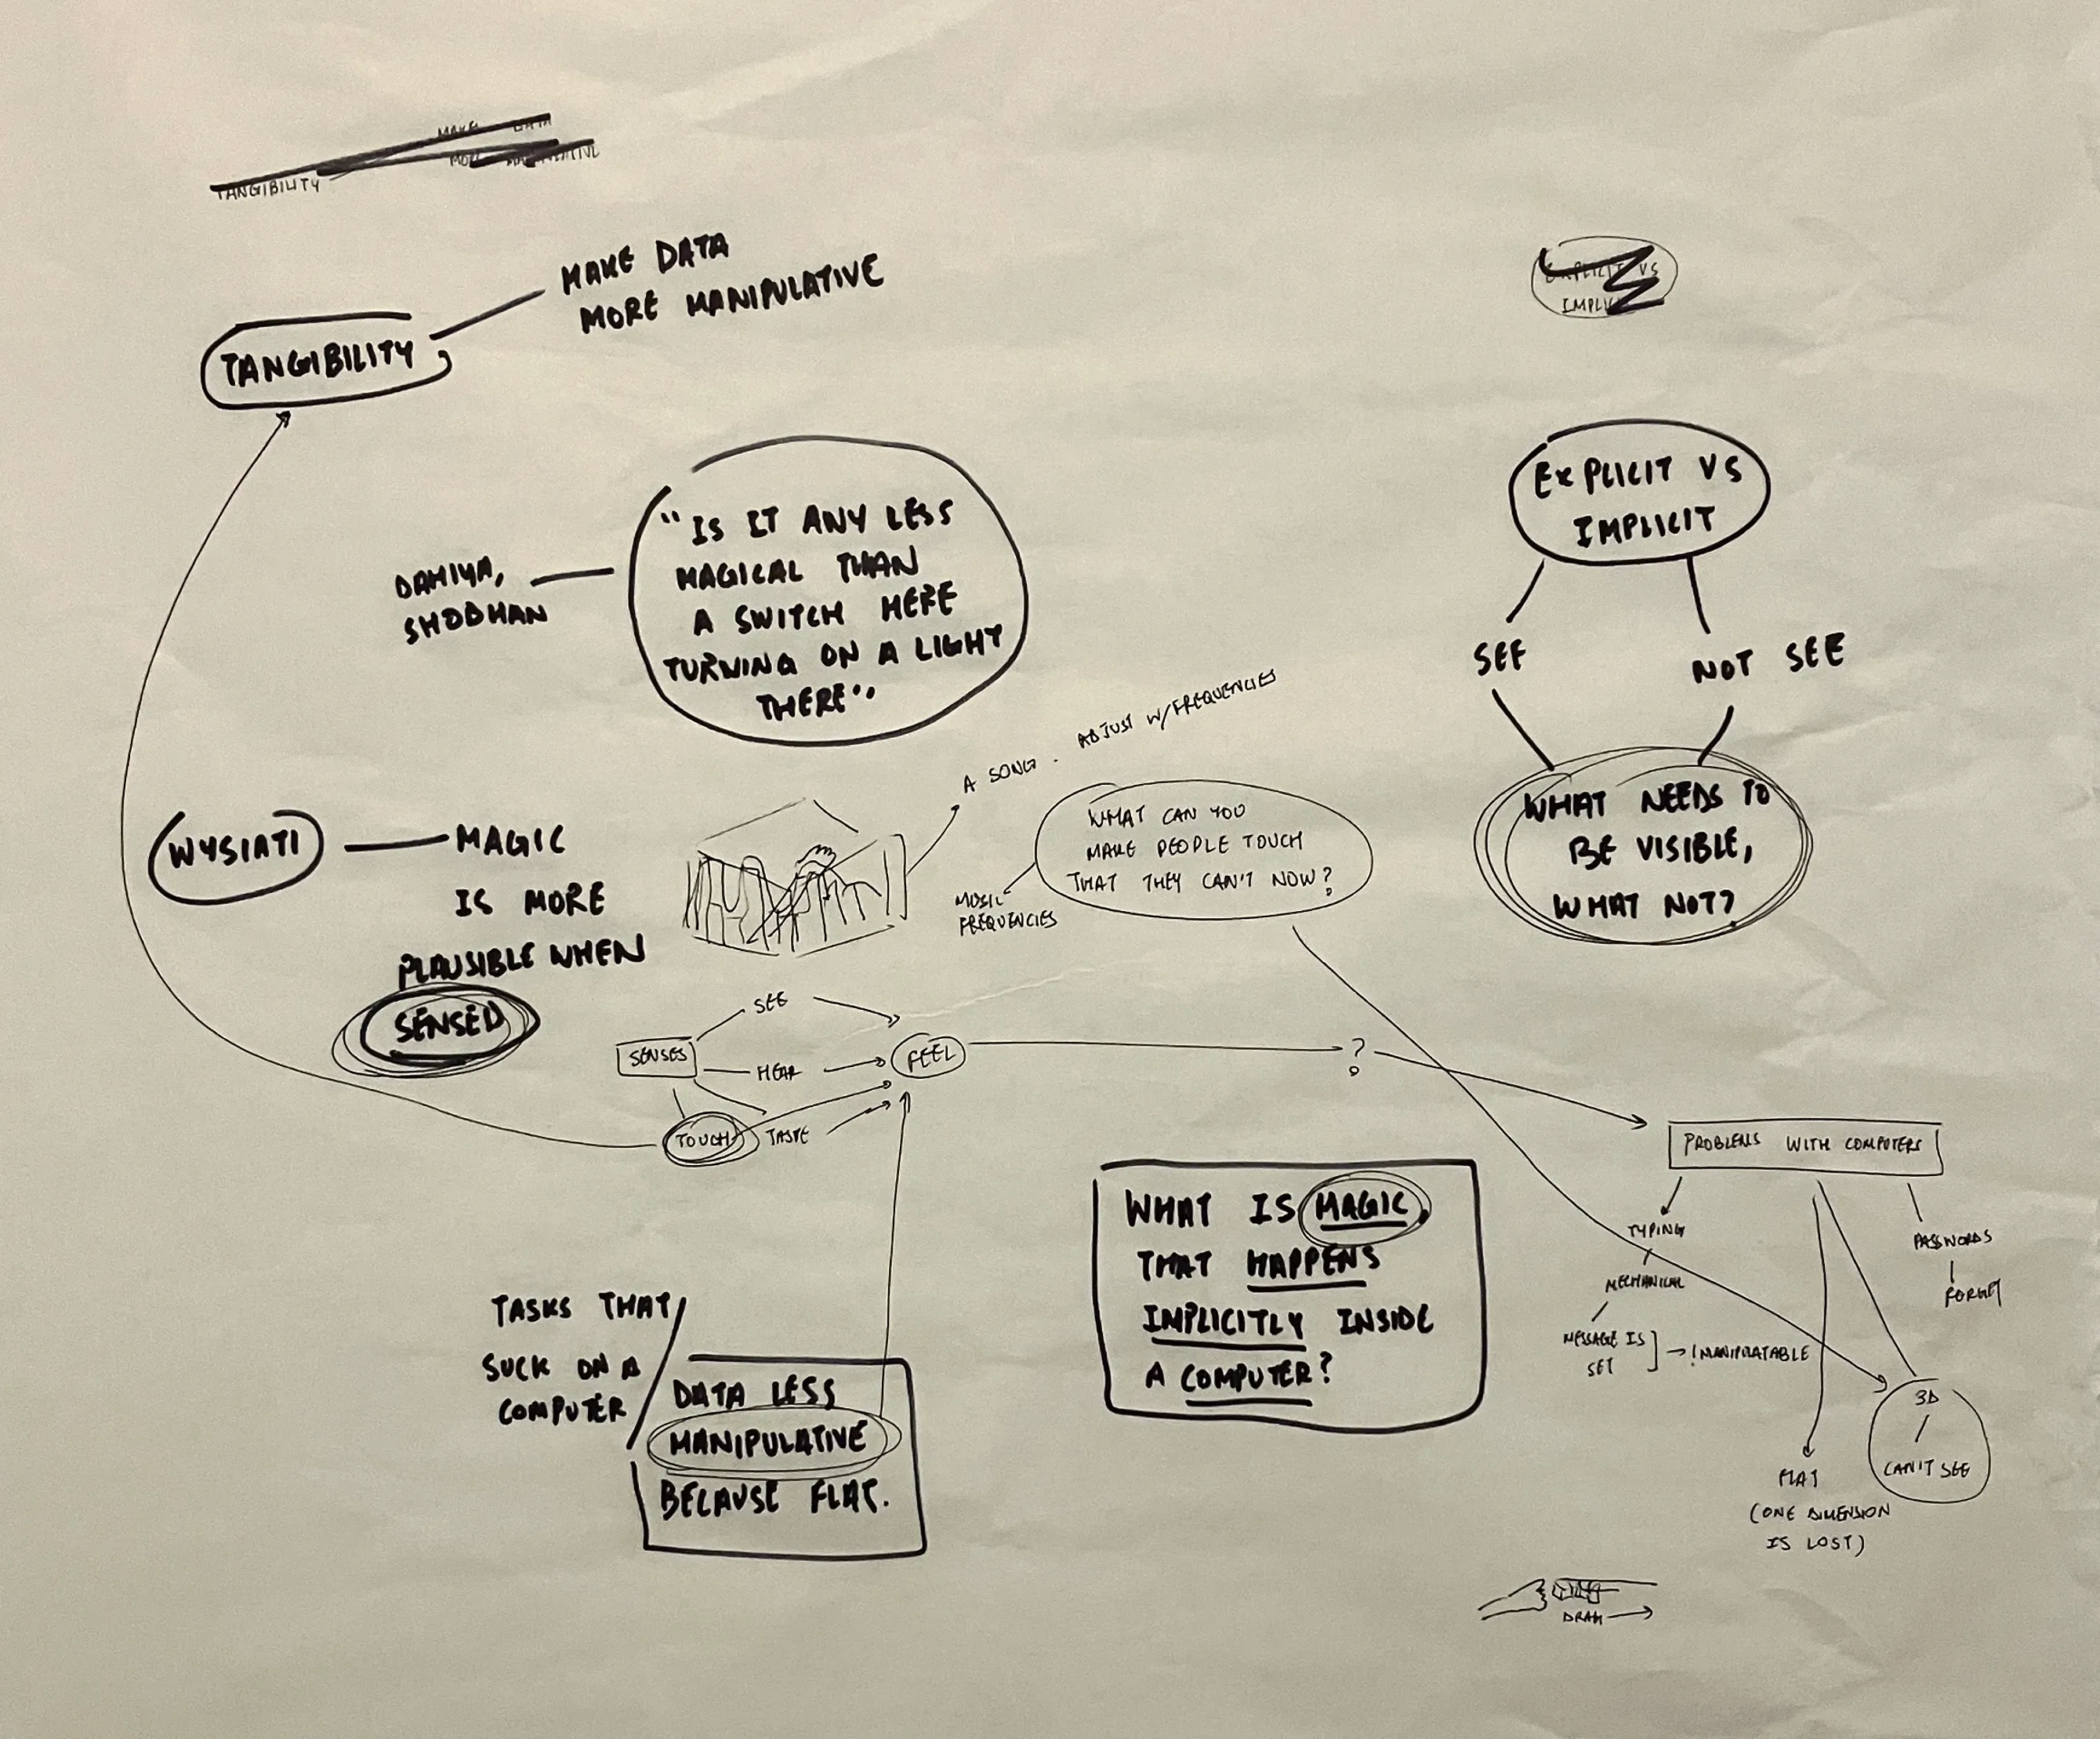 MAKE DATA
MORE
TANGIBILITY
MAKE DATA
MORE MANIPULATIVE
TANGIBILITY
EXPLICIT VS
EXPLICIT VS
IMPLICIT
SEE
NOT SEE
WHAT NEEDS TO
BE VISIBLE,
WHAT NOT?
"IS IT ANY LESS
MAGICAL THAN
A SWITCH HERE
TURNING ON A LIGHT
THERE"
DAHIYA,
SHOBHAN
A SONG. ADJUST W/FREQUENCIES
WHAT CAN YOU
MAKE PEOPLE TOUCH
THAT THEY CAN'T NOW?
MUSIC
FREQUENCIES
WYSIATI
MAGIC
IS MORE
PLAUSIBLE WHEN
SENSED
SENSES
SEE
HEAR
TOUCH
TASTE
FEEL
?
PROBLEMS WITH COMPUTERS
TYPING
MECHANICAL
MESSAGE IS
SET
→ !MANIPULATABLE
PASSWORDS
FORGET
3D
CAN'T SEE
FLAT
(ONE DIMENSION
IS LOST)
WHAT IS MAGIC
THAT HAPPENS
IMPLICITLY INSIDE
A COMPUTER?
TASKS THAT
SUCK ON A
COMPUTER
DATA LESS
MANIPULATIVE
BECAUSE FLAT.
DRAG →